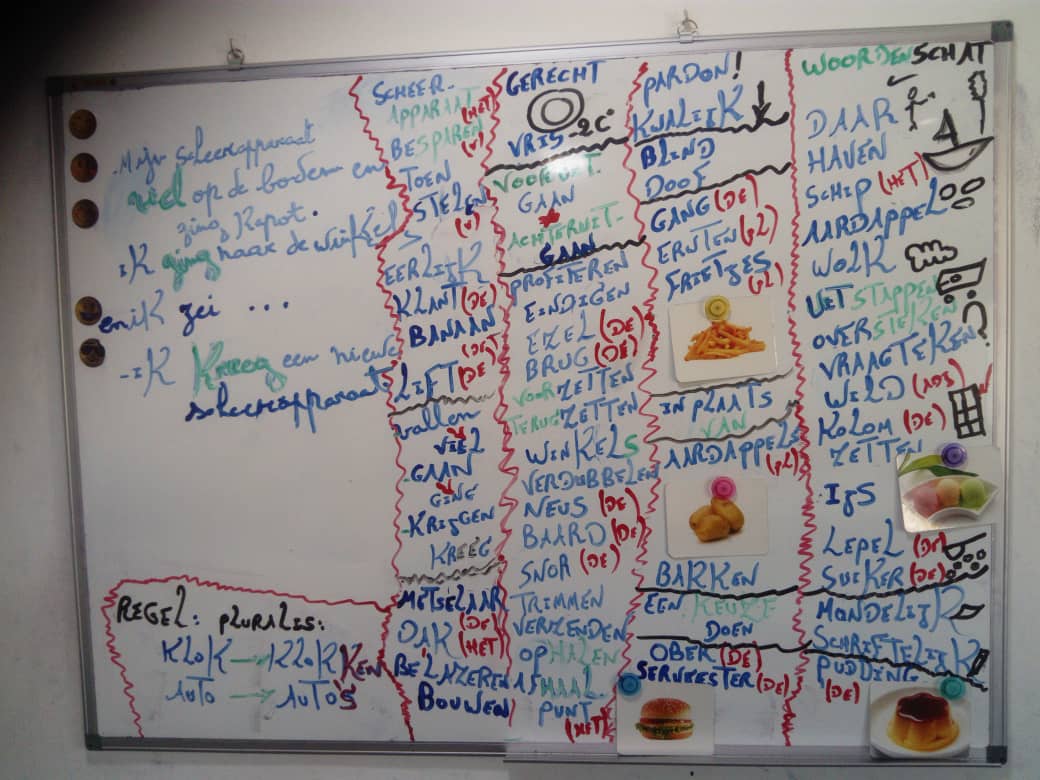 - Mijn scheerapparaat
viel op de bodem en
ging kapot.
- iK ging naar de winkel
en iK zei ...
- iK Kreeg een nieuwe
scheerapparaat
REGEL: PLURALIS:
KLOK → KLOKKEN
AUTO → AUTO'S
SCHEER-
APPARAAT
(HET)
BESPAREN
(V)
TOEN
STELEN
(V)
EERLIJK
KLANT (DE)
BANAAN
(DE)
LIFT (DE)
vallen
VIEL
-GAAN
GING
-KRIJGEN
KREEG
METSELAAR
(DE)
DAK (HET)
BOUWEN
GERECHT
VRIS -2C°
VOORUIT-
GAAN
ACHTERUIT-
GAAN
PROFITEREN
EINDIGEN
EZEL (DE)
BRUG (DE)
VOORZETTEN
TERUGZETTEN
WINKELS
VERDUBBELEN
NEUS (DE)
BAARD (DE)
SNOR (DE)
TRIMMEN
VERZENDEN
OPHALEN
AFHAAL-
PUNT
(HET)
PARDON!
KWALIJK
BLIND
DOOF
GANG (DE)
ERWTEN (PL)
FRIETJES
(PL)
IN PLAATS
VAN
AARDAPPELS
(PL)
BAKKEN
EEN KEUZE
DOEN
OBER (DE)
SERVEESTER (DE)
WOORDENSCHAT
DAAR
HAVEN
SCHIP (HET)
AARDAPPEL
WOLK
UITSTAPPEN
OVERSTEKEN
VRAAGTEKEN ?
WILD (ADJ)
KOLOM (DE)
ZETTEN
IJS
LEPEL (DE)
SUIKER (DE)
MONDELIJK
SCHRIFTELIJK
PUDDING
(DE)